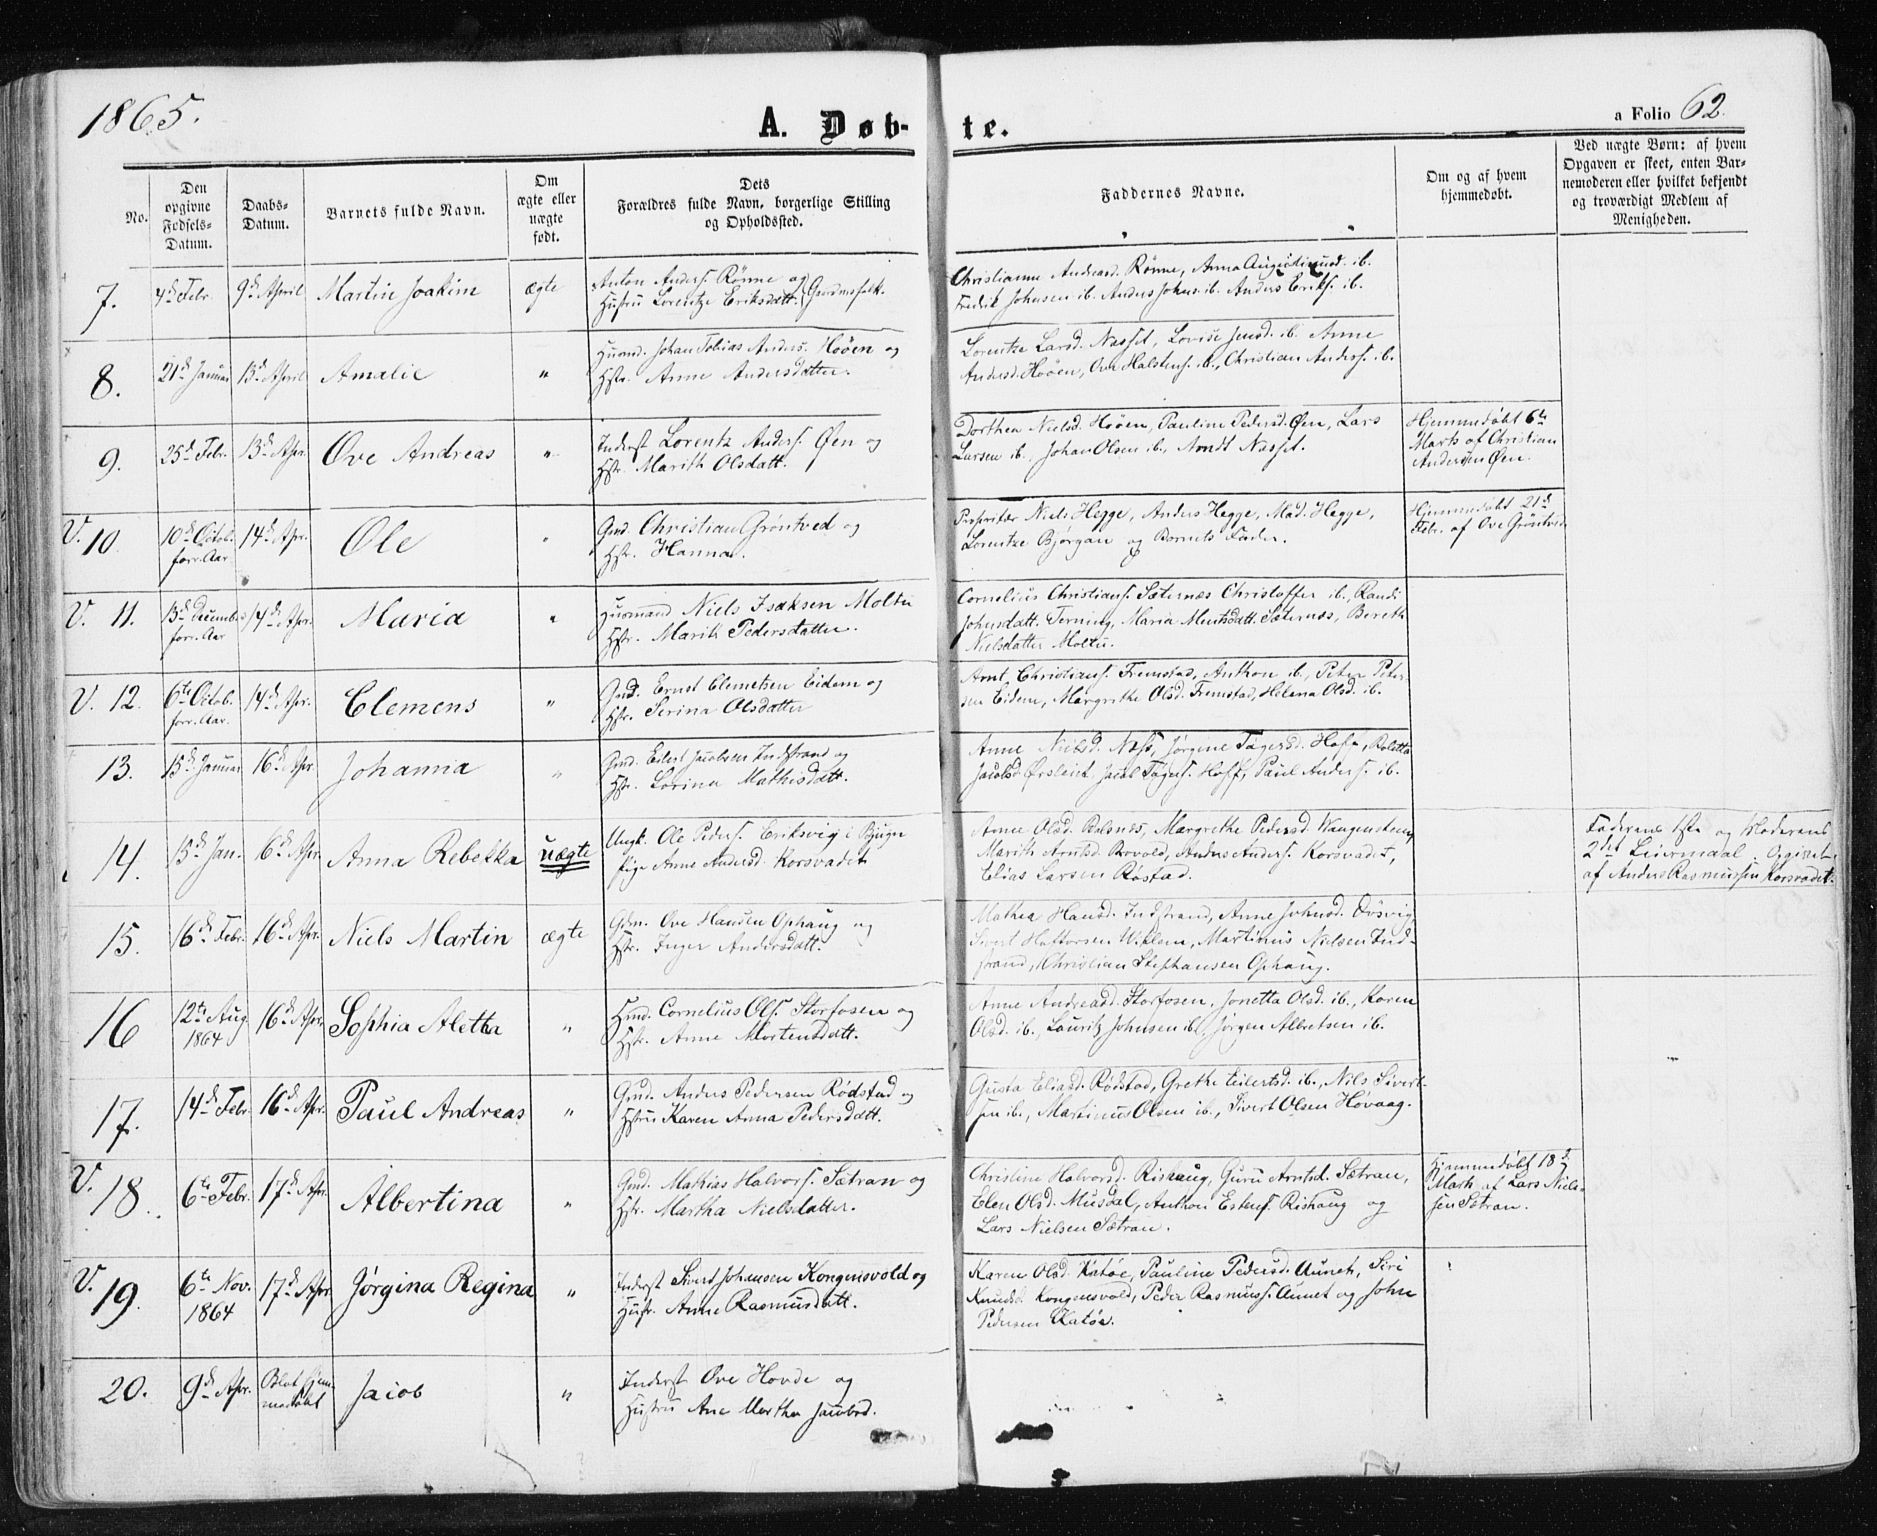 1865.
A. Døb-
te.
a Folio 62.
No.
Den
opgivne
Fødsels-
Datum.
Daabs-
Datum.
Barnets fulde Navn.
Om
ægte eller
uægte
født.
Dets
Forældres fulde Navn, borgerlige Stilling
og Opholdssted.
Faddernes Navne.
Om og af hvem
hjemmedøbt.
Ved uægte Børn: af hvem
Opgaven er skeet, enten Bar-
nemoderen eller hvilket bekjendt
og troværdigt Medlem af
Menigheden.
7.
4de Febr.
9de April
Martin Joakim
ægte
Anton Anders. Rönne og
Hustru Lorentze Eriksdatt. Gaardmfolk.
Christianna Andreasd. Rönne, Anna Augustinusd. ib.
Fredrik Johnsen ib. Anders Johns. ib. Anders Eriks. ib.
8.
21de Januar
13de April
Amalie
"
Huusmd. Johan Tobias Anders. Høöen og
Hstr. Anne Andersdatter.
Lorentze Larsd. Nasset, Lovise Jensd. ib. Anne
Andersd. Høöen, Ove Halstens. ib., Christian Anders. ib.
9.
25de Febr.
13de Apr.
Ove Andreas
"
Inderst Lorentz Anders. Øen og
Hstr. Marith Olsdatt.
Dorthea Nielsd. Høöen, Pauline Pedersd. Øen, Lars
Larsen ib., Johan Olsen ib., Arndt Nasset.
Hjemmedøbt 6te
Marts af Christian
Andersen Øen.
V. 10.
10de Octob.
forr. Aar
14de Apr.
Ole
"
Gmd Christian Gröntved og
Hstr. Hanna.
Proprietær Niels Hegge, Anders Hegge, Mad. Hegge,
Lorentze Bjørgan og Barnets Fader.
Hjemmedøbt 21de
Febr. af Ove Gröntved
V. 11.
13de December
forr. Aar
14de Apr.
Maria
"
Huusmand Niels Isaksen Moltu
Hstr. Marith Pedersdatter.
Cornelius Christians. Sæternes Christoffer ib., Randi
Johnsdatt. Terning, Maria Mentsdatt. Sæternes, Bereth
Nielsdatter Moltu.
V. 12.
6te Octob.
forr. Aar.
14de Apr.
Clemens
"
Gmd. Ernst Clemetsen Eidem og
Hstr. Serina Olsdatter
Arnt Christians. Fremstad, Anthon ib., Peter Peter
sen Eidem, Margrethe Olsd. Fremstad, Helena Olsd. ib.
13.
15de Januar
16de Apr.
Johanna
"
Gmd. Edest Jacobsen Indstrand og
Hstr. Lorina Mathisdatt.
Anne Nielsd. Næss, Jørgine Tøgersd. Hoff, Boletta
Jacobsd. Ørsleiet, Jacob Tøgers. Hoff, Paul Anders. ib.
14.
13de Jan.
16de Apr.
Anna Rebekka
uægte
Ungk. Ole Peders. Eriksvig i Bjugn
Pige Anne Andersd. Korsvadet
Anne Olsd. Balsnes, Margrethe Pedersd. Wangensteen,
Marith Arntsd. Borvold, Anders Anders. Korsvadet,
Elias Larsen Røstad.
Faderens 1ste og Moderens
2det Leiermaal. Opgivet
af Anders Rasmussen Korsvadet.
15.
16de Febr.
16de Apr.
Niels Martin
ægte
Gdm. Ove Hansen Ophaug og
Hstr. Inger Andersdatt.
Mathea Hansd. Indstrand, Anne Johnsd. Døsvig
Sivert Hattorsen Viklem, Martinus Nielsen Ind-
strand, Christian Stephansen Ophaug.
16
12te Aug.
1864
16de Apr.
Sophia Aletha
"
Hmd. Cornelius Ols. Storfosen og
Hstr. Anne Mortensdatt.
Anne Andreasd. Storfosen, Jonetta Olsd. ib., Karen
Olsd. ib., Lauritz Johnsen ib., Jørgen Albretsen ib.
17.
14de Febr.
16de Apr.
Paul Andreas
"
Gmd. Anders Pedersen Rødstad og
Hstru Karen Anna Pedersdatt.
Gusta Eliasd. Rødstad, Grethe Eilertsd. ib., Nils Sivert-
sen ib., Martinus Olsen ib., Sivert Olsen Høvaag.
V. 18.
6te Febr.
17de Apr.
Albertina
"
Gmd. Mathias Halvors. Sætran og
Hstr. Martha Nielsdatter.
Christine Halvorsd. Rishaug, Guru Arntsd. Sætran,
Elen Olsd. Musdal, Anthon Estens. Rishaug og
Lars Nielsen Sætran.
Hjemmedøbt 18de
Marts af Lars Niels-
sen Sætran.
V. 19.
6te Nov.
1864
17de Apr.
Jørgina Regina
"
Inderst Sivert Johansen Kongensvold og
Hustr. Anne Rasmusdatt.
Karen Olsd. Katøe, Pauline Pedersd. Aunet, Siri
Knudsd. Kongensvold, Peder Rasmuss. Aunet og John
Pedersen Katøe.
20.
9de Apr.
Blot hjem-
medøbt
Jacob
"
Inderst Ove Hovde og
Hustru Ane Martha Jacobsd.